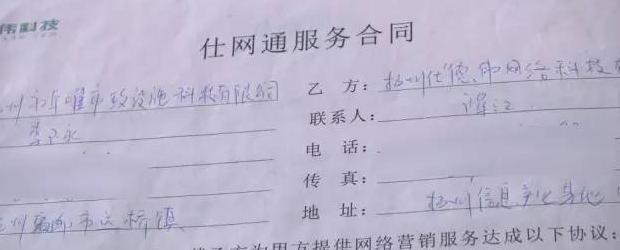 伟科技
仕网通服务合同
州市 市政设施科技有限公司 乙 方： 扬州仕德伟网络科技有
联系人：
电 话：
传 真：
州 市 桥镇 地 址： 扬州信息产业基地
方为甲方提供网络营销服务达成以下协议：